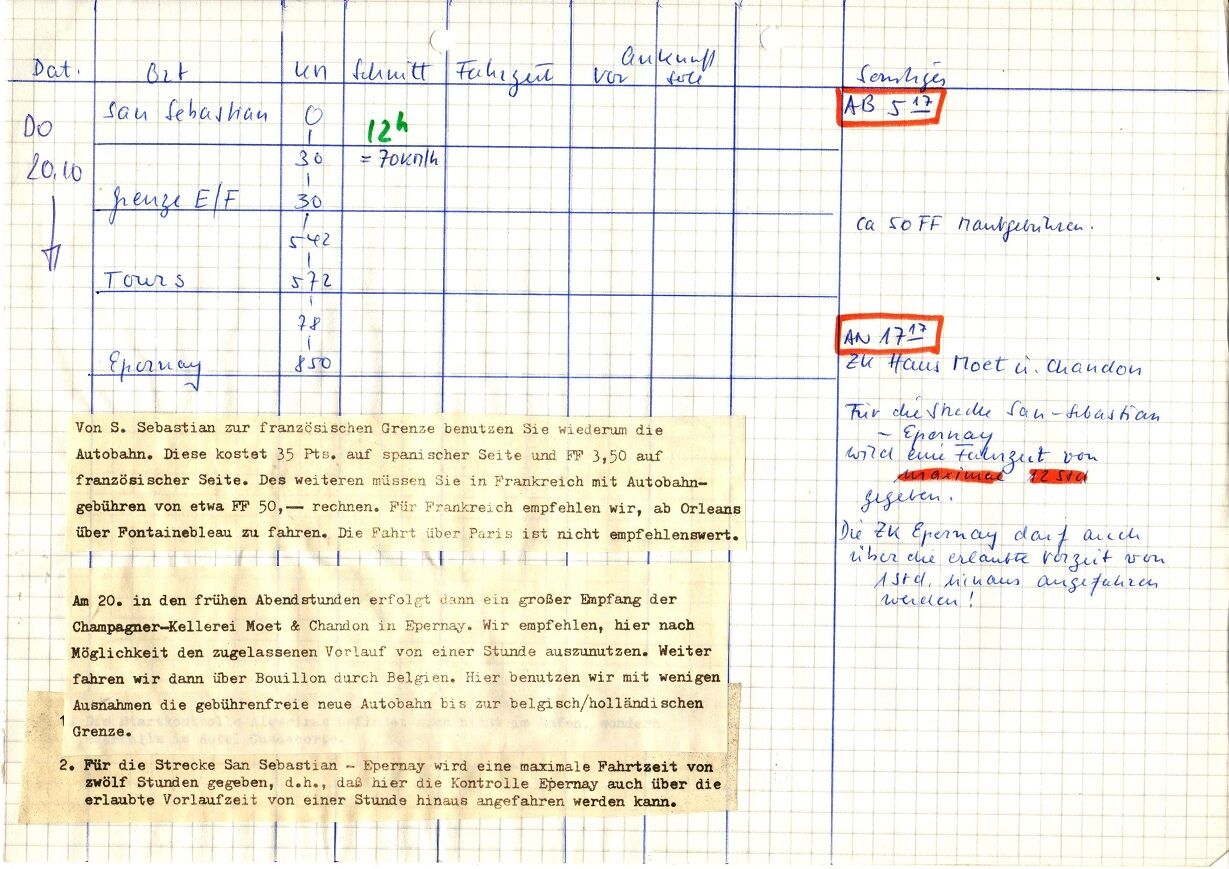 Ankunft
Dat. Ort KM Schnitt Fahrzeit vor soll Sonstiges
San Sebastian 0 AB 5 17
DO 12h
20.10 30 = 70 KM/h
Grenze E/F 30
ca 50 FF Mautgebühren.
542
Tours 572
78 AN 17 17
Epernay 850 ZK Haus Moet u. Chandon
Für die Strecke San-Sebastian
- Epernay
wird eine Fahrzeit von
maximal 12 Std
gegeben.
Die ZK Epernay darf auch
über die erlaubte Vorzeit von
1 Std. hinaus angefahren
werden!
Von S. Sebastian zur französischen Grenze benutzen Sie wiederum die
Autobahn. Diese kostet 35 Pts. auf spanischer Seite und FF 3,50 auf
französischer Seite. Des weiteren müssen Sie in Frankreich mit Autobahn-
gebühren von etwa FF 50,— rechnen. Für Frankreich empfehlen wir, ab Orleans
über Fontainebleau zu fahren. Die Fahrt über Paris ist nicht empfehlenswert.
Am 20. in den frühen Abendstunden erfolgt dann ein großer Empfang der
Champagner-Kellerei Moet & Chandon in Epernay. Wir empfehlen, hier nach
Möglichkeit den zugelassenen Vorlauf von einer Stunde auszunutzen. Weiter
fahren wir dann über Bouillon durch Belgien. Hier benutzen wir mit wenigen
Ausnahmen die gebührenfreie neue Autobahn bis zur belgisch/holländischen
Grenze.
1
2. Für die Strecke San Sebastian - Epernay wird eine maximale Fahrtzeit von
zwölf Stunden gegeben, d.h., daß hier die Kontrolle Epernay auch über die
erlaubte Vorlaufzeit von einer Stunde hinaus angefahren werden kann.